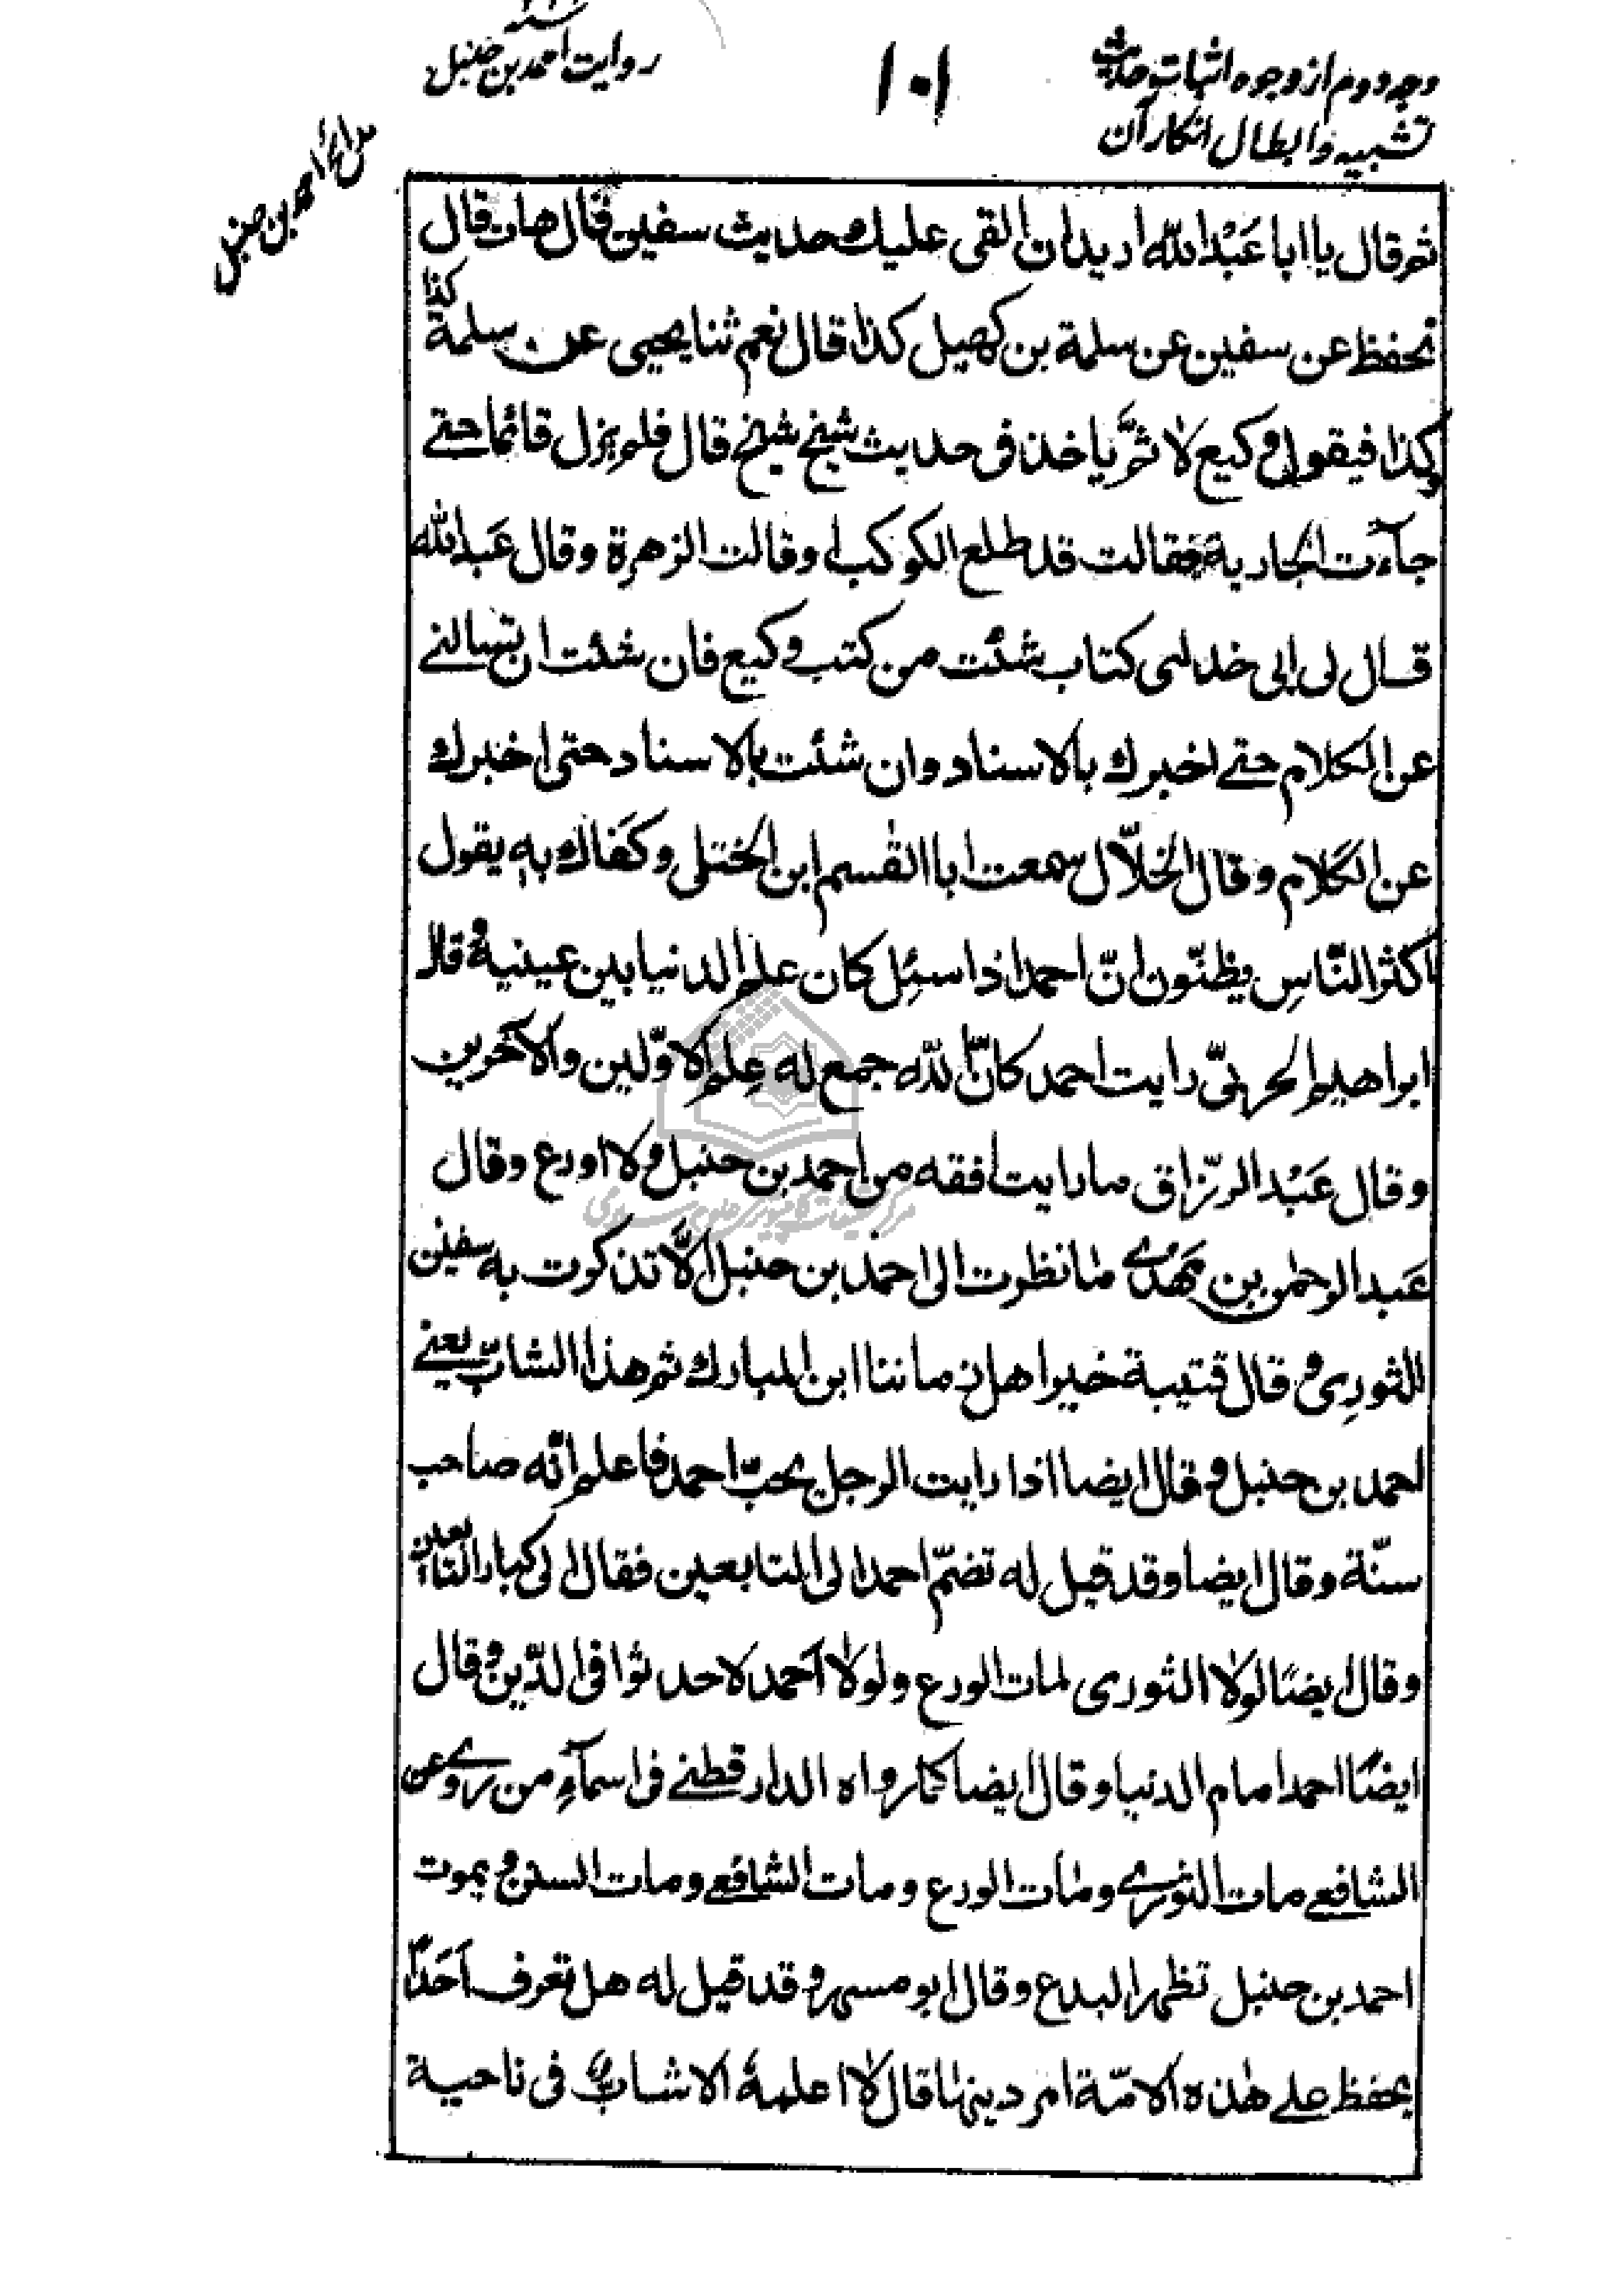 وجه دوم از وجوه اثبات حدیث
تشبیه و ابطال انکار آن
۱۰۱
روایت احمد بن حنبل
مدائح احمد بن حنبل
ثم قال یا ابا عبد الله ارید ان القی علیک حدیث سفین قال هات قال
تحفظ عن سفین عن سلمة بن کهیل کذا قال نعم ثنا یحیی عن سلمة کذا
وکذا فیقول وکیع لا ثمّ یاخذ فی حدیث شیخ شیخ قال فلم یزل قائما حتی
جآءت الجاریة فقالت قد طلع الکوکب او قالت الزهرة وقال عبد الله
قال لی ابی خذ لی کتاب شئت من کتب وکیع فان شئت ان تسالنی
عن الکلام حتی اخبرک بالاسناد وان شئت بالاسناد حتی اخبرک
عن الکلام وقال الخلّال سمعت ابا القسم ابن الختلی وکفاک به یقول
اکثر النّاسِ یظنّون انّ احمد اذا سئِل کان علم الدنیا بین عینیه وقال
ابراهیم الحربیّ رایت احمد کانّ الله جمع له عِلم الاوّلین والآخرین
وقال عبد الرّزاق ما رایت افقه من احمد بن حنبل ولا اورع وقال
عبد الرحمن بن مهدی ما نظرت الی احمد بن حنبل الّا تذکرت به سفین
الثورِی وقال قتیبة خیر اهل زماننا ابن المبارک ثم هذا الشابّ یعنی
احمد بن حنبل وقال ایضا اذا رایت الرجل یحبّ احمد فاعلم انّه صاحب
سنّة وقال ایضا وقد قیل له تضمّ احمد الی التابعین فقال الی کبار التابعین
وقال ایضًا لولا الثوری لمات الورع ولولا احمد لاحدثوا فی الدّین وقال
ایضًا احمد امام الدنیا وقال ایضا کما رواه الدارقطنی فی اسمآءِ من روی عن
الشافعی مات الثوری ومات الورع ومات الشافعی ومات السنن ویموت
احمد بن حنبل تظهر البدع وقال ابو مسهر وقد قیل له هل تعرف احدًا
یحفظ علی هذه الامّة امر دینها قال لا اعلمه الا شابّ فی ناحیة